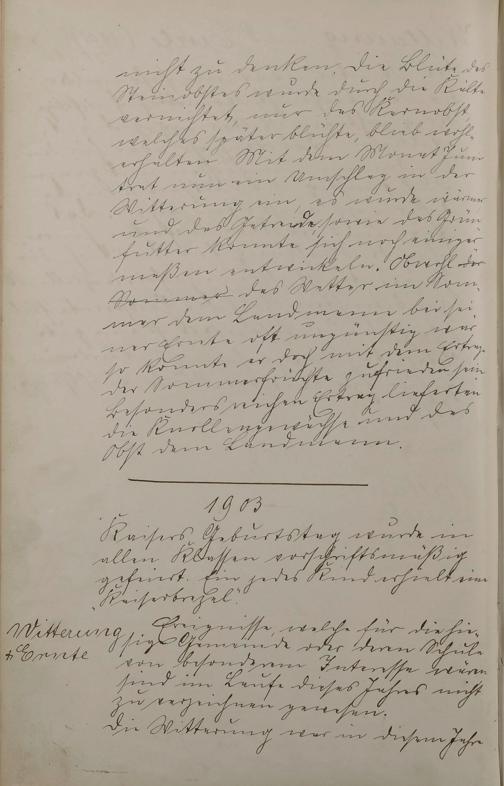 nicht zu denken. Die Blüte des
Steinobstes wurde durch die Kälte
vernichtet, nur das Kernobst
welches später blühte, blieb wohl
erhalten. Mit dem Monat Juni
trat nun ein Umschlag in der
Witterung ein, es wurde wärmer
und das Getreide sowie das Grün
futter konnte sich noch einiger
maßen entwickeln. Obwohl der
Sommer das Wetter im Som-
mer dem Landmann bei sei
ner Ernte oft ungünstig war
so konnte er doch mit dem Ertrag
der Sommerfrüchte zufrieden sein
Besonders reichen Ertrag lieferten
die Knollengewächse und das
Obst dem Landmann.
1903
Kaisers Geburtstag wurde in
allen Klassen vorschriftsmäßig
gefeiert. Ein jedes Kind erhielt eine
"Kaiserbrezel".
Witterung
& Ernte
Ereignisse, welche für die hie-
sige Gemeinde oder deren Schule
von besonderem Interesse wären
sind im Laufe dieses Jahres nicht
zu verzeichnen gewesen.
Die Witterung war in diesem Jahre